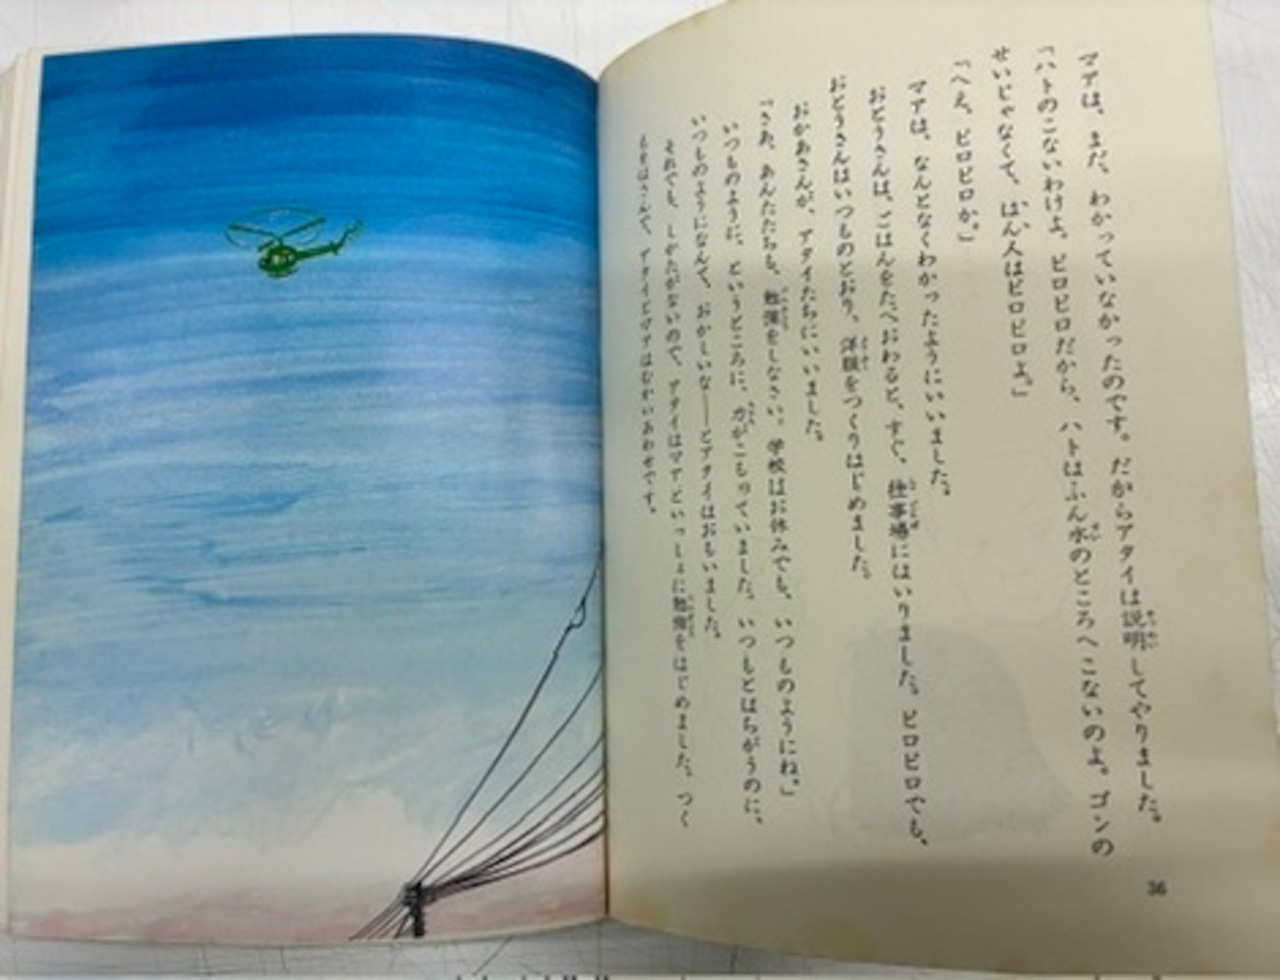 マアは、まだ、わかっていなかったのです。だからアタイは説明してやりました。
「ハトのこないわけよ。ピロピロだから、ハトはふん水のところへこないのよ。ゴンの
せいじゃなくて、はん人はピロピロよ。」
「へえ、ピロピロか。」
マアは、なんとなくわかったようにいいました。
おとうさんは、ごはんをたべおわると、すぐ、仕事場にはいりました。ピロピロでも、
おとうさんはいつものとおり、洋服をつくりはじめました。
おかあさんが、アタイたちにいいました。
「さあ、あんたたちも、勉強をしなさい。学校はお休みでも、いつものようにね。」
いつものように、というところに、力がこもっていました。いつもとはちがうのに、
いつものようになんて、おかしいな――とアタイはおもいました。
それでも、しかたがないので、アタイはマアといっしょに勉強をはじめました。つく
えをはさんで、アタイとマアはむかいあわせです。
36